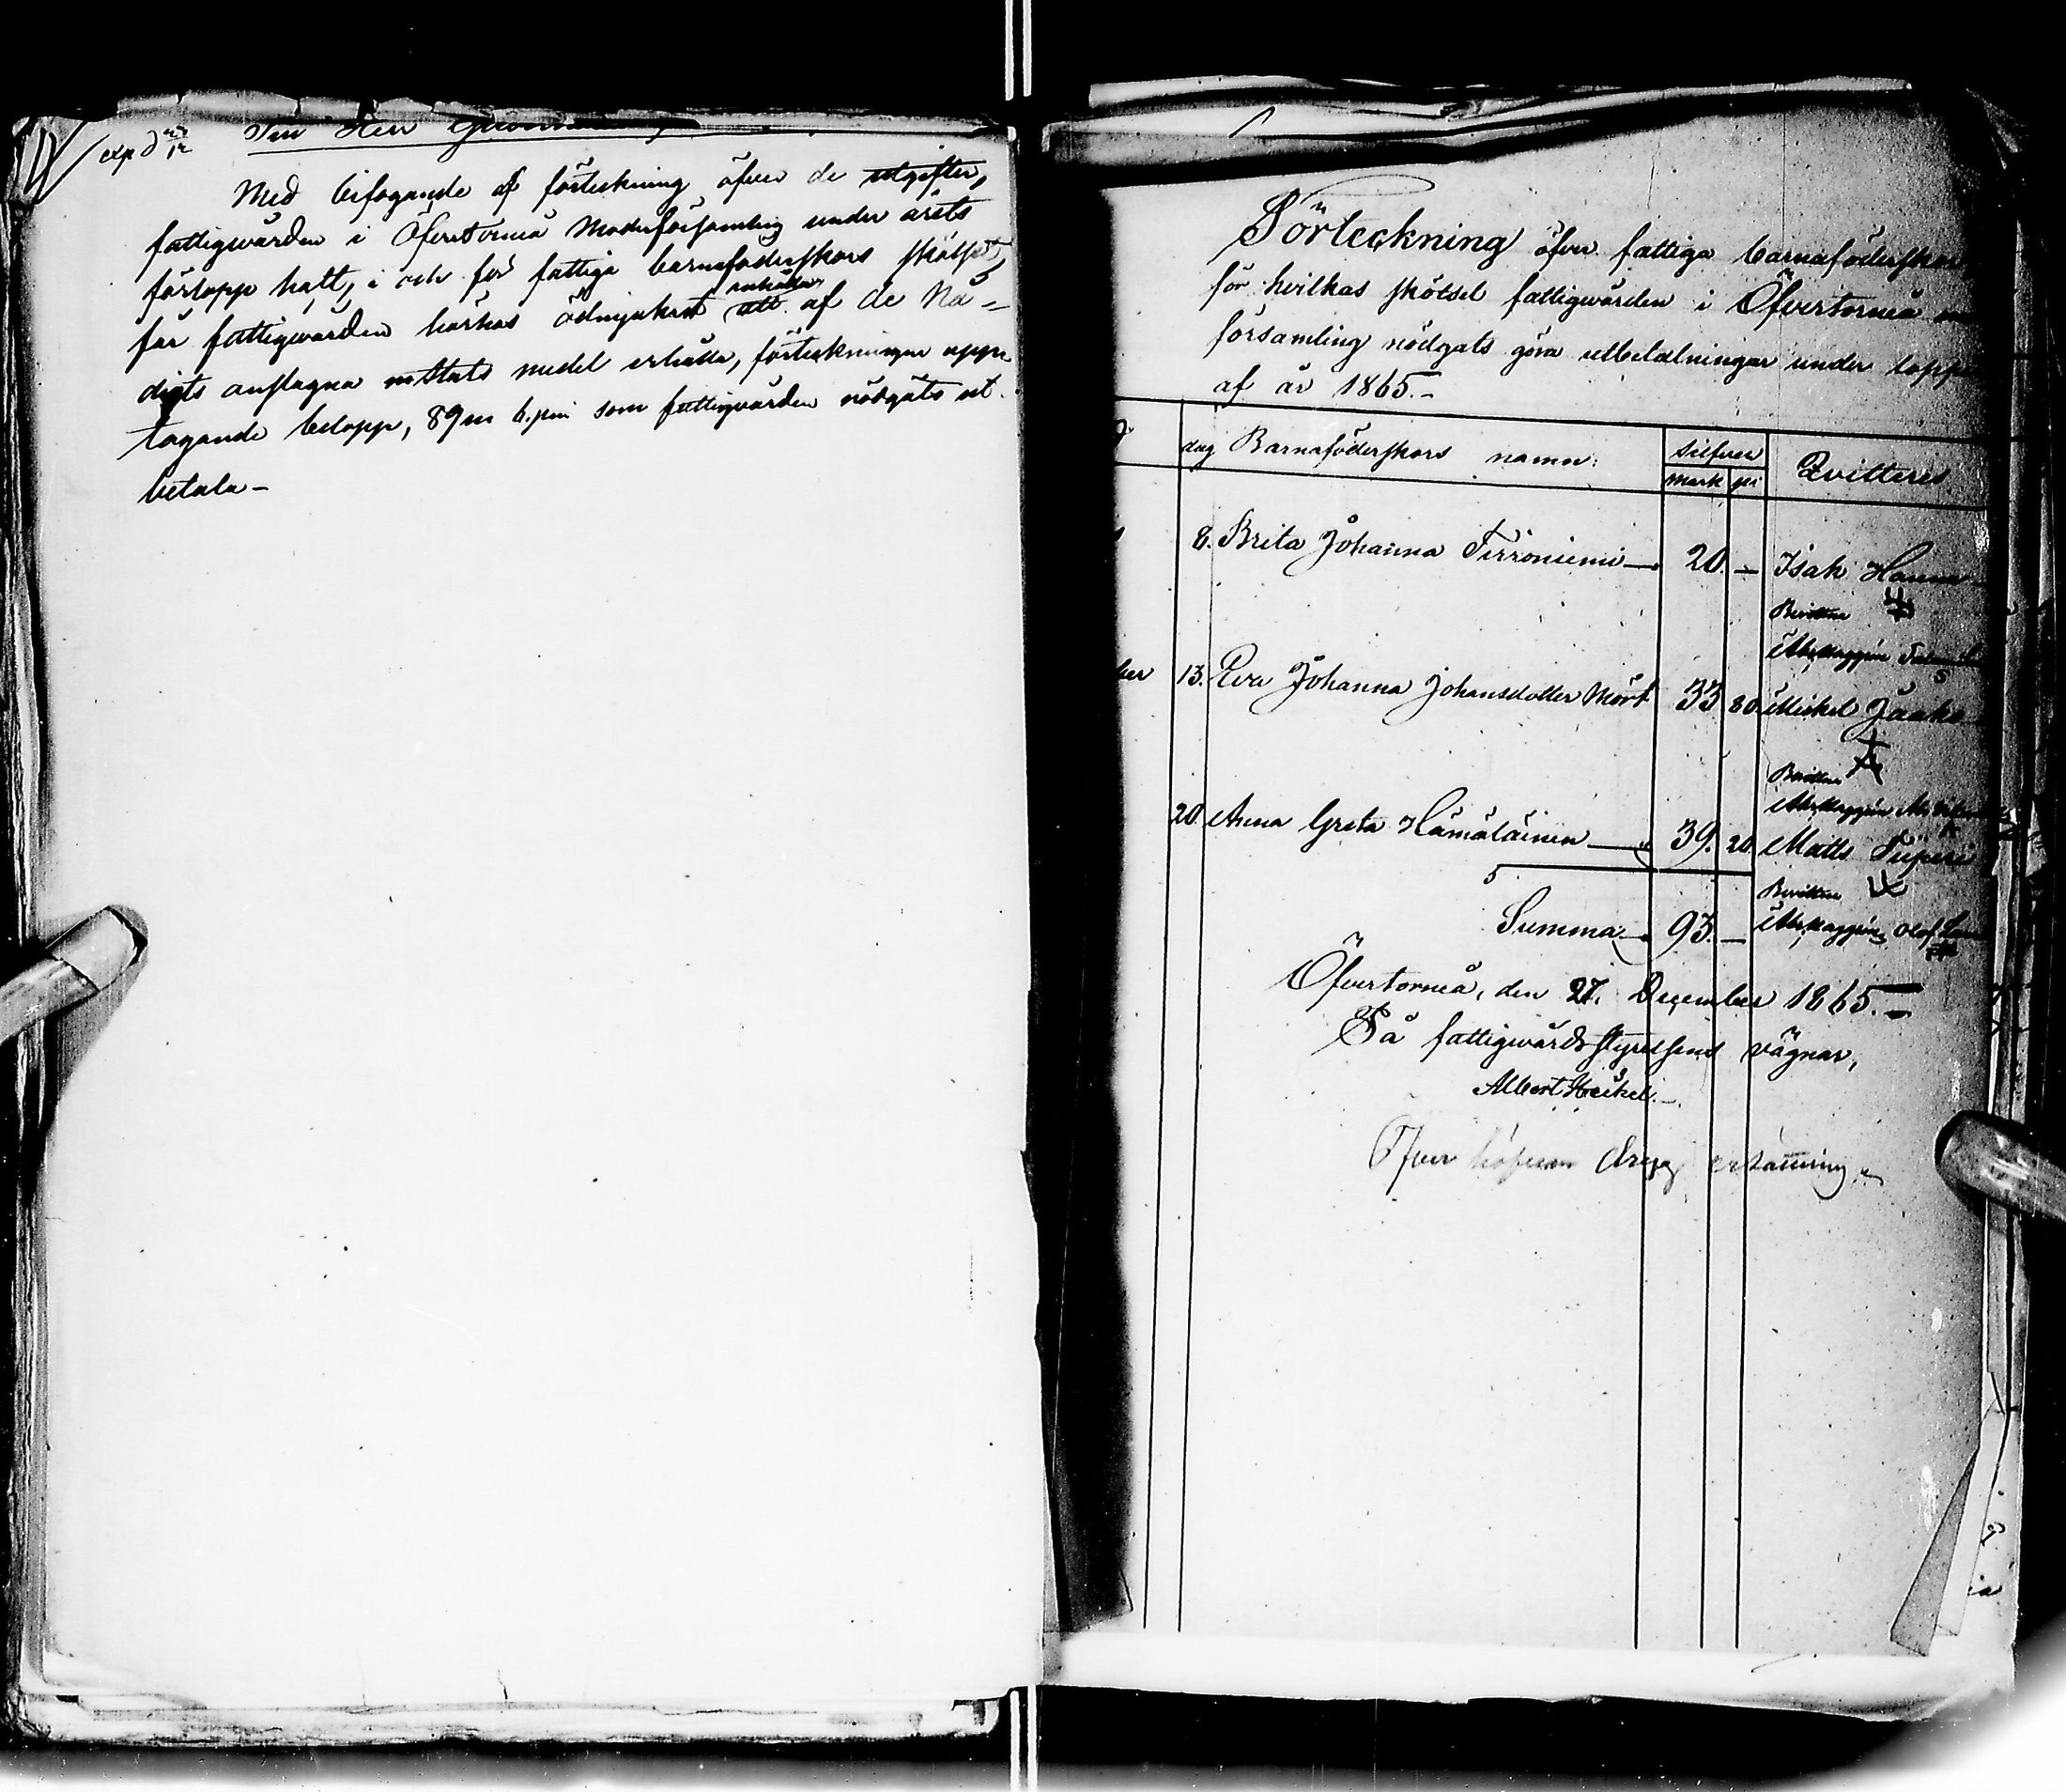 exp d 27/12 Till Herr Guvernören
Med bifogande af förteckning öfver de utgifter,
fattigvården i Öfvertorneå Moderförsamling under årets
förlopp haft, i och för fattiga barnaföderskors skötsel,
får fattigvården härhos ödmjukast anhålla att af de Nå-
digts anslagna Stats medel erhålla, förteckningen upp
tagande belopp, 89 m 6. pni som fattigvården nödgats ut
betala -
Förteckning öfver fattiga barnaföderskor
för hvilkas skötsel fattigvården i Öfvertorneå
församling nödgats göra utbetalningar under lopp
af år 1865.-
dag Barnaföderskors namn: silfver Qvitteres
mark pi
8. Brita Johanna Tirroniemi 20. - Isak Hannu
Bevittna
13. Eva Johanna Johansdotter Mört 33 80 Mickel Jaako
Bevittna
20. Anna Greta Hämäläinen 39. 20. Matts Piiperi
Bevittna
Olof
Summa 93. -
Öfvertorneå, den 27. December 1865.-
På fattigvårdsstyrelsens vägnar,
Albert Heikel.-
Öfver